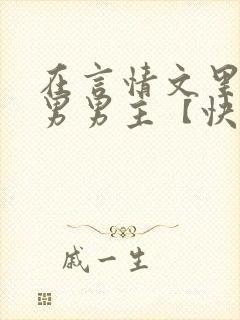 在言情文
男男主【快
戚一生